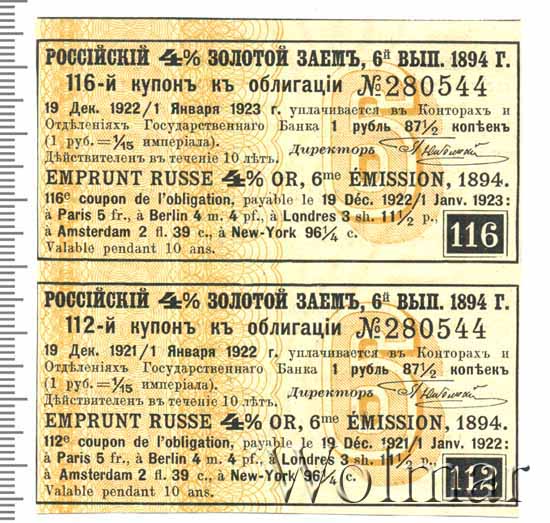 РОССІЙСКІЙ 4% ЗОЛОТОЙ ЗАЕМЪ, 6й ВЫП. 1894 Г.
116-й купонъ къ облигаціи № 280544
19 Дек. 1922/1 Января 1923 г. уплачивается въ Конторахъ и
Отдѣленіяхъ Государственнаго Банка 1 рубль 87½ копѣекъ
(1 руб. = 1/15 имперіала).
Дѣйствителенъ въ теченіе 10 лѣтъ. Директоръ
EMPRUNT RUSSE 4% OR, 6me ÉMISSION, 1894.
116e coupon de l'obligation, payable le 19 Déc. 1922/1 Janv. 1923:
à Paris 5 fr., à Berlin 4 m. 4 pf., à Londres 3 sh. 11½ p.,
à Amsterdam 2 fl. 39 c., à New-York 96¼ c.
Valable pendant 10 ans.
116
РОССІЙСКІЙ 4% ЗОЛОТОЙ ЗАЕМЪ, 6й ВЫП. 1894 Г.
112-й купонъ къ облигаціи № 280544
19 Дек. 1921/1 Января 1922 г. уплачивается въ Конторахъ и
Отдѣленіяхъ Государственнаго Банка 1 рубль 87½ копѣекъ
(1 руб. = 1/15 имперіала).
Дѣйствителенъ въ теченіе 10 лѣтъ. Директоръ
EMPRUNT RUSSE 4% OR, 6me ÉMISSION, 1894.
112e coupon de l'obligation, payable le 19 Déc. 1921/1 Janv. 1922:
à Paris 5 fr., à Berlin 4 m. 4 pf., à Londres 3 sh. 11½ p.,
à Amsterdam 2 fl. 39 c., à New-York 96¼ c.
Valable pendant 10 ans.
112
Wolmar